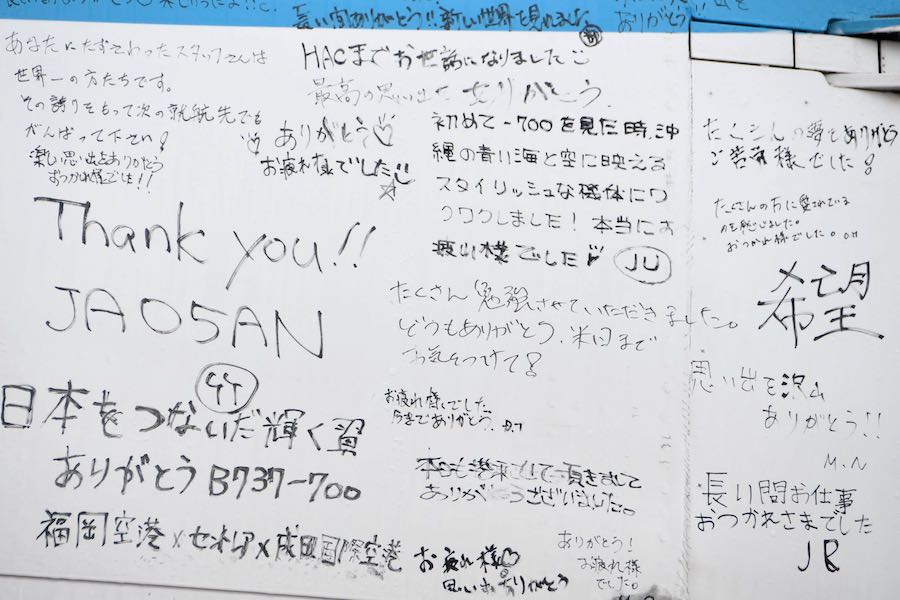 長い間ありがとう!!新しい世界を見れました
ありがとう
あなたにたずさわったスタッフさんは
世界一の方たちです。
その誇りをもって次の就航先でも
がんばって下さい!
楽しい思い出をありがとう
おつかれ様でした!!
HACまでお世話になりました
最高の思い出をありがとう
ありがとう♡
お疲れ様でした
初めて-700を見た時、沖
縄の青い海と空に映える
スタイリッシュな機体にワ
クワクしました! 本当にお
疲れ様でした
JU
Thank you!!
JA05AN
たくさん勉強させていただきました。
どうもありがとう、米国まで
お気をつけて!
お疲れ様でした
今まであがとう、
日本をつないだ輝く翼
ありがとう B737-700
福岡空港×セントレア×成田国際空港
ありがとうございました。
お疲れ様♡
思い出ありがとう
ありがとう!
お疲れ様
でした。
たくさんの夢をありがとう
ご苦労様でした!
たくさんの方に愛されている
のを感じました。
おつかれ様でした。
希望
思い出を沢山
ありがとう!!
M.N
長い間お仕事
おつかれさまでした
JR